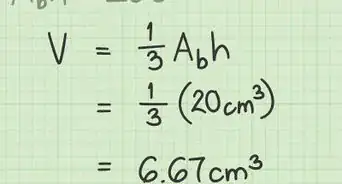 V = 1/3 A_b h
= 1/3 (20cm³)
= 6.67cm³